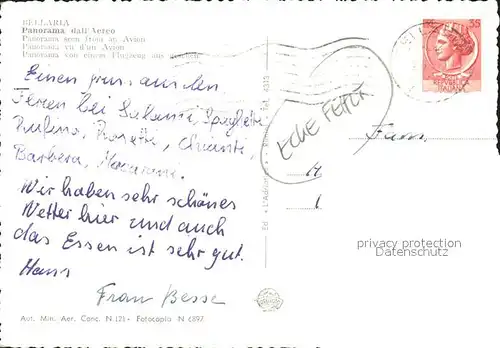 BELLARIA
Panorama dall'Aereo
Panorama seen from an Avion
Panorama vu d'un Avion
Panorama von einem Flugzeug aus gesehen
Einen Gruss aus den
Ferien bei Salami, Spaghetti
Rufino, Rosetti, Chianti,
Barbera,
Wir haben sehr schönes
Wetter hier und auch
das Essen ist sehr gut.
Hans
Frau Besse
Aut. Min. Aer. Conc. N 121 - Fotocopia N 6897
4313
ECKE FEHLT
35
REPUBBLICA
ITALIANA
Fam.
privacy protection
© ansichtskarten-center.de